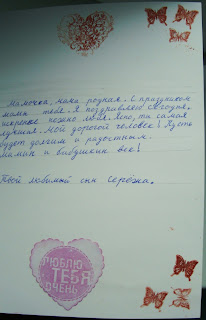 Мамочка, мама родная. С праздником
мама тебя. Я поздравляю сегодня.
искренне нежно любя. Ясно, ты самая
лучшая. Мой дорогой человек! Пусть
будет долгим и радостным
мамин и бабушкин век!
Твой любимый сын Серёжа.
ЛЮБЛЮ
ТЕБЯ
ОЧЕНЬ